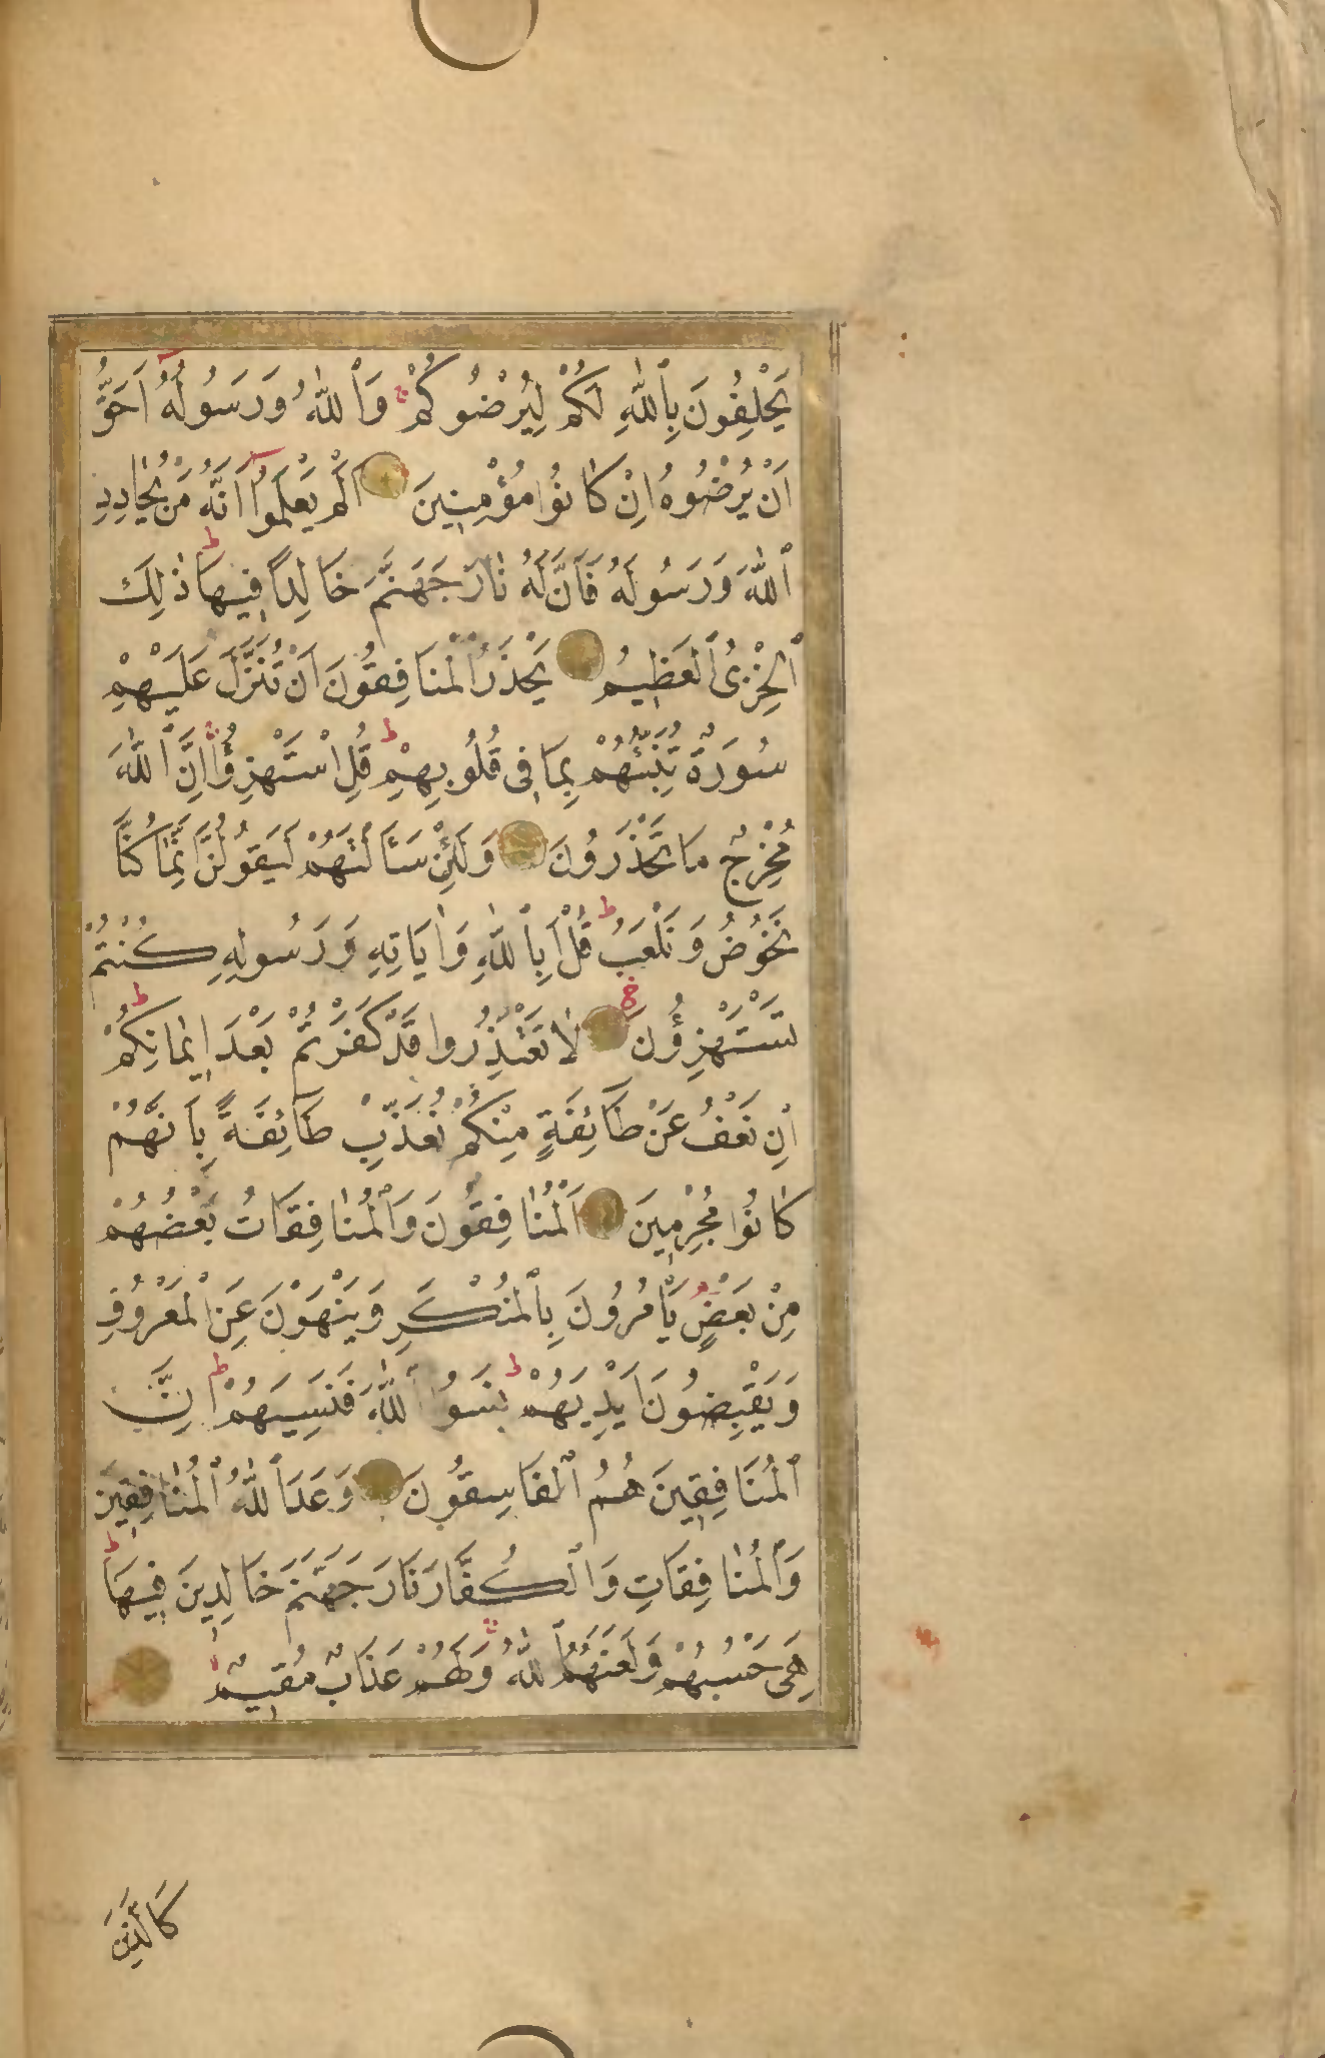 يَحْلِفُونَ بِٱللّٰهِ لَكُمْ لِيُرْضُوكُمْ وَٱللّٰهُ وَرَسُولُهُٓ اَحَقُّ
اَنْ يُرْضُوهُ اِنْ كَانُوا مُؤْمِنِينَ اَلَمْ يَعْلَمُٓوا اَنَّهُ مَنْ يُحَادِدِ
ٱللّٰهَ وَرَسُولَهُ فَاَنَّ لَهُ نَارَ جَهَنَّمَ خَالِدًا فِيهَا ذٰلِكَ
ٱلْخِزْىُ ٱلْعَظِيمُ يَحْذَرُ ٱلْمُنَافِقُونَ اَنْ تُنَزَّلَ عَلَيْهِمْ
سُورَةٌ تُنَبِّئُهُمْ بِمَا فِى قُلُوبِهِمْ قُلِ اسْتَهْزِؤُا اِنَّ ٱللّٰهَ
مُخْرِجٌ مَا تَحْذَرُونَ وَلَئِنْ سَئَلْتَهُمْ لَيَقُولُنَّ اِنَّمَا كُنَّا
نَخُوضُ وَنَلْعَبُ قُلْ اَبِٱللّٰهِ وَاٰيَاتِهِ وَرَسُولِهِ كُنْتُمْ
تَسْتَهْزِؤُنَ لَا تَعْتَذِرُوا قَدْ كَفَرْتُمْ بَعْدَ اِيمَانِكُمْ
اِنْ نَعْفُ عَنْ طَائِفَةٍ مِنْكُمْ نُعَذِّبْ طَائِفَةً بِاَنَّهُمْ
كَانُوا مُجْرِمِينَ اَلْمُنَافِقُونَ وَٱلْمُنَافِقَاتُ بَعْضُهُمْ
مِنْ بَعْضٍ يَأْمُرُونَ بِٱلْمُنْكَرِ وَيَنْهَوْنَ عَنِ ٱلْمَعْرُوفِ
وَيَقْبِضُونَ اَيْدِيَهُمْ نَسُوا ٱللّٰهَ فَنَسِيَهُمْ اِنَّ
ٱلْمُنَافِقِينَ هُمُ ٱلْفَاسِقُونَ وَعَدَ ٱللّٰهُ ٱلْمُنَافِقِينَ
وَٱلْمُنَافِقَاتِ وَٱلْكُفَّارَ نَارَ جَهَنَّمَ خَالِدِينَ فِيهَا
هِىَ حَسْبُهُمْ وَلَعَنَهُمُ ٱللّٰهُ وَلَهُمْ عَذَابٌ مُقِيمٌ
كَٱلَّذِينَ